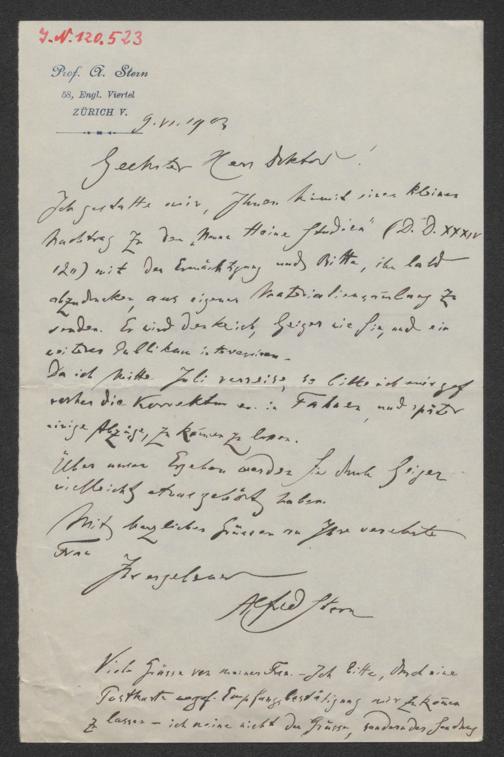 J.N. 120.523
Prof. A. Stern
58, Engl. Viertel
ZÜRICH V.
9. VI. 1903
Geehrter Herr Doktor!
Ich gestatte mir, Ihnen hiemit einen kleinen
Nachtrag zu den „Neue Heine Studien" (D. D. XXXIV
120) mit der Ermächtigung und Bitte, ihn bald
abzudrucken, aus eigener Materialiensammlung zu
senden. Es wird Geiger wie Sie, und ein
weiteres Publikum interessiren.
Da ich Mitte Juli verreise, so bitte ich mir gef.
vorher die Korrektur in Fahnen, und später
einige Abzüge, zukommen zu lassen.
Über unser Ergehen werden Sie durch Geiger
vielleicht etwas gehört haben.
Mit herzlichen Grüssen an Ihre verehrte
Frau
Ihr ergebener
Alfred Stern
Viele Grüsse von meiner Frau. - Ich bitte, durch eine
Postkarte gef. Empfangsbestätigung mir zukommen
zu lassen - ich meine nicht der Grüsse, sondern der Sendung